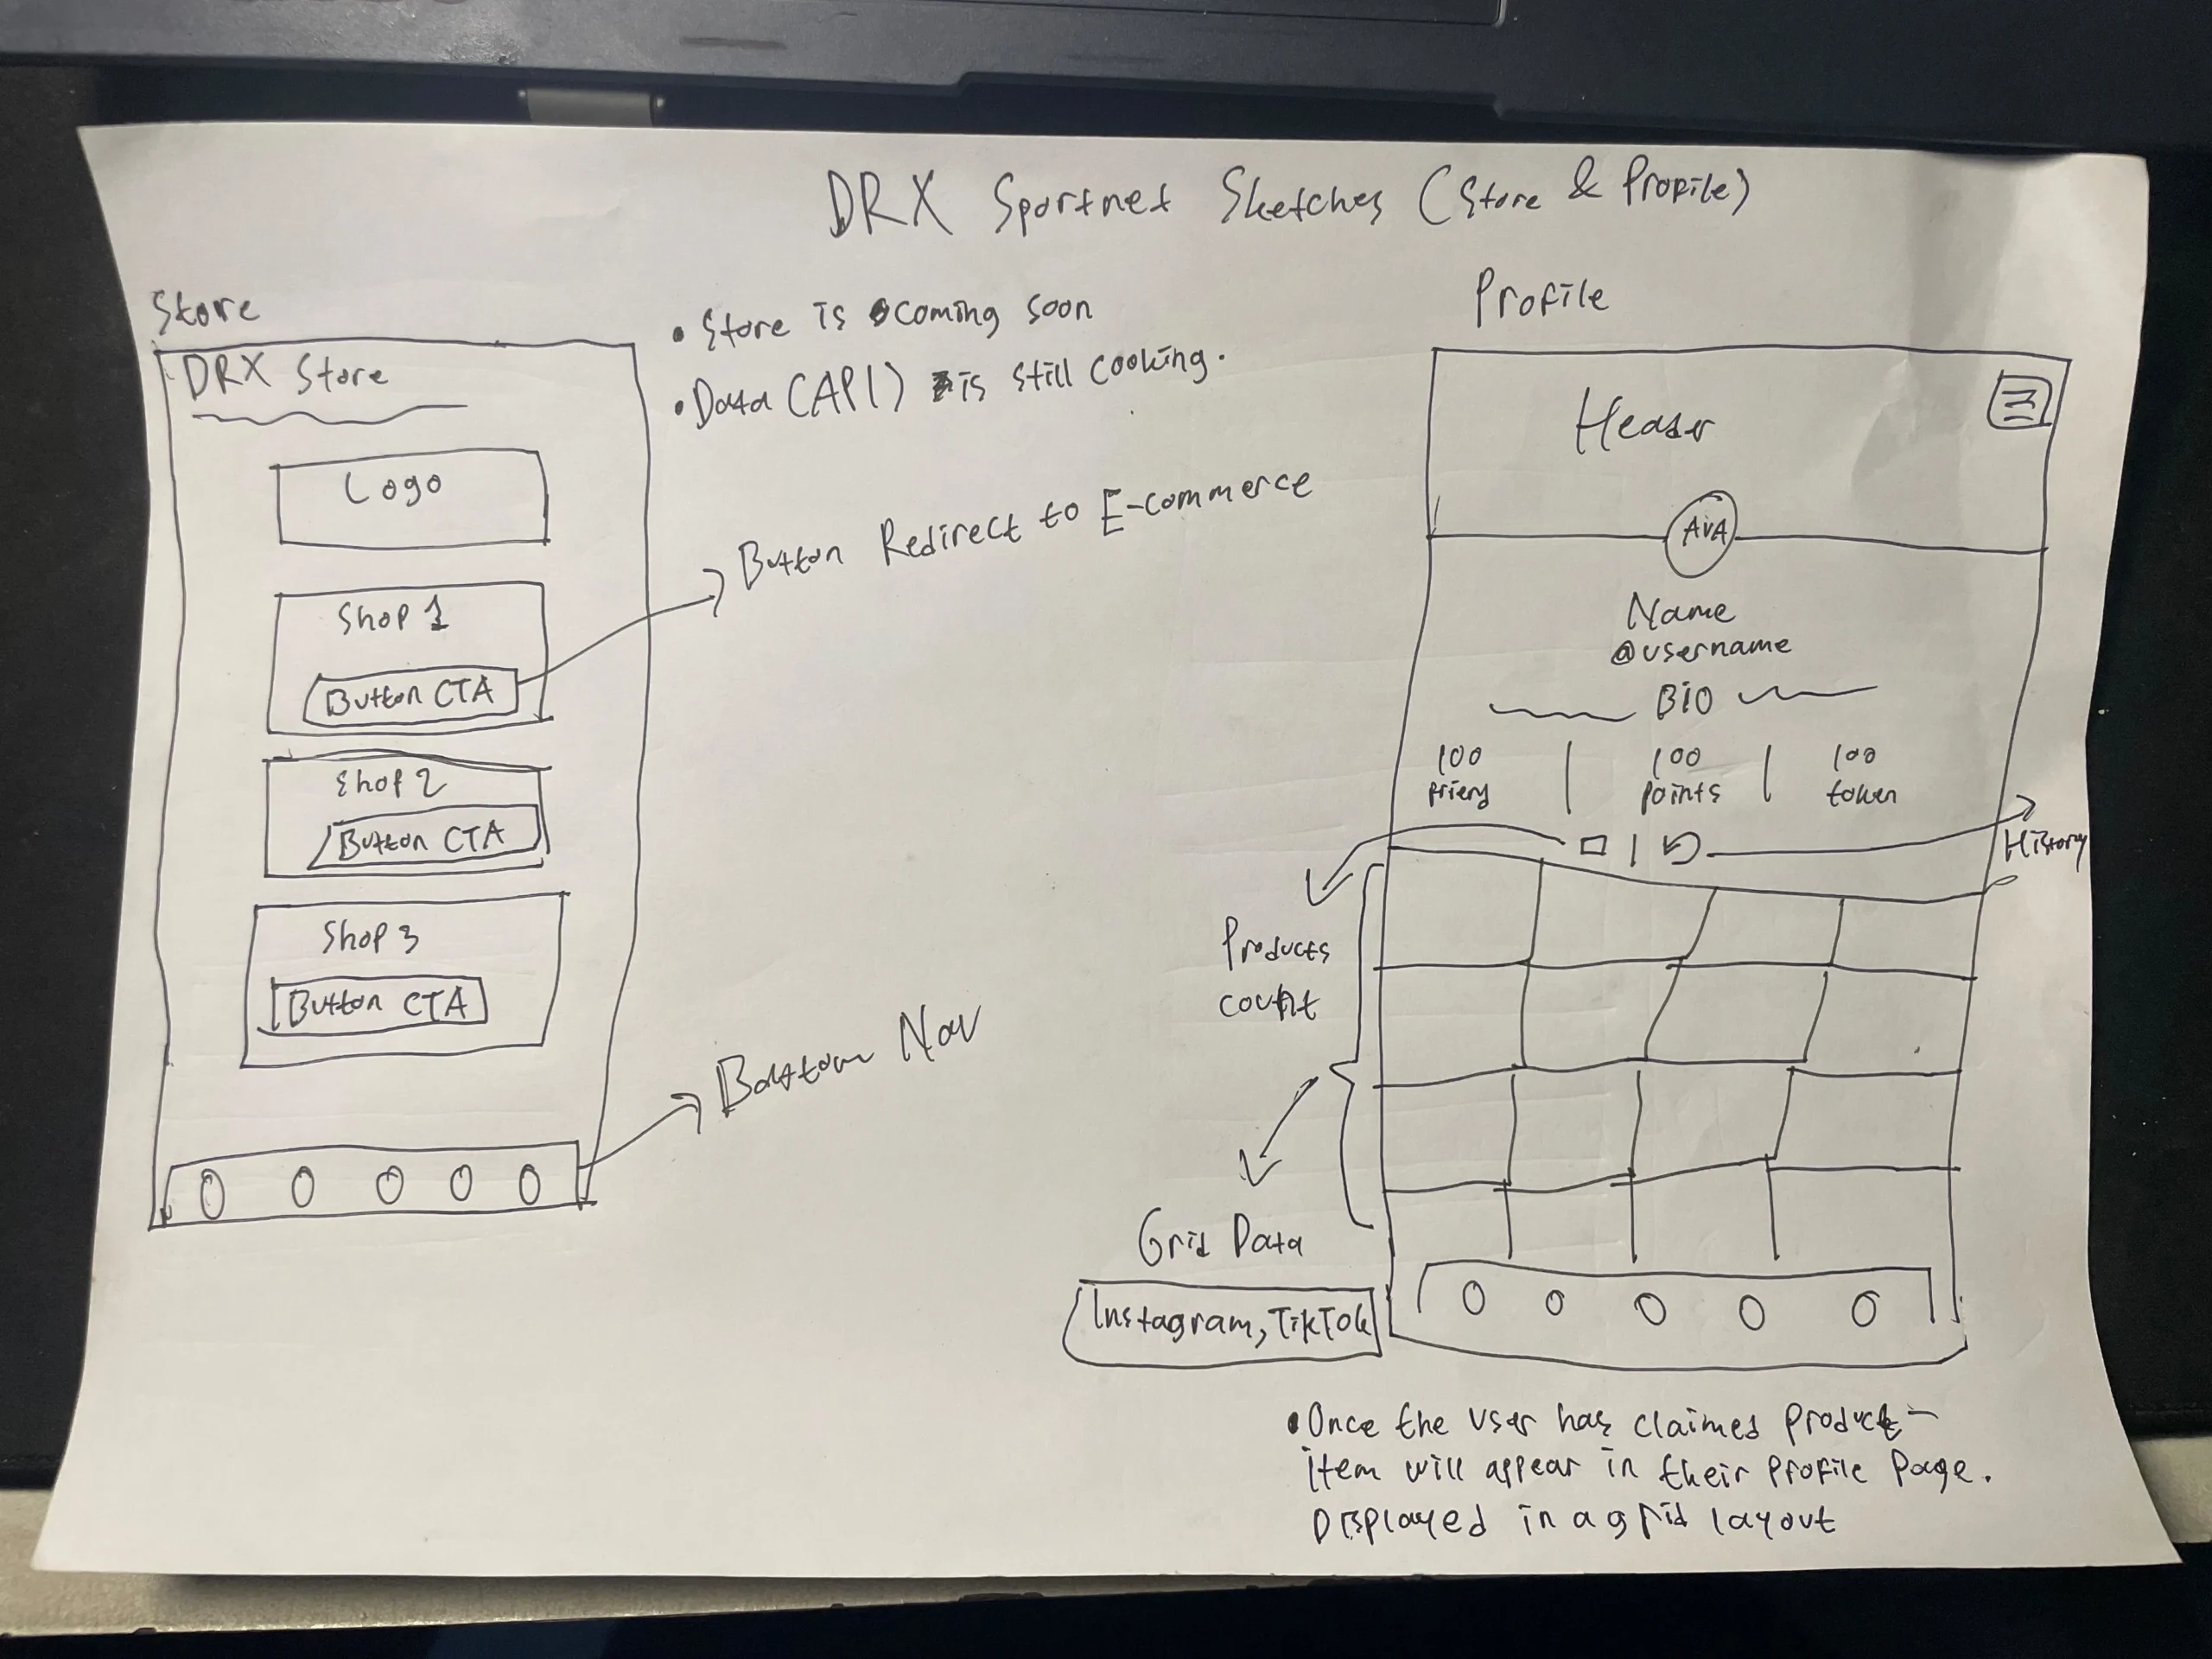 DRX Sportnet Sketches (Store & Profile)
Store
DRX Store
Logo
Shop 1
Button CTA
Shop 2
Button CTA
Shop 3
Button CTA
• Store is coming soon
• Data (API) is still cooking.
Button Redirect to E-commerce
Bottom Nav
Profile
Header
AVA
Name
@username
BIO
100 | 100 | 100
points token
History
Products
count
Grid Data
Instagram, TikTok
• Once the user has claimed product-
item will appear in their profile page.
Displayed in a grid layout